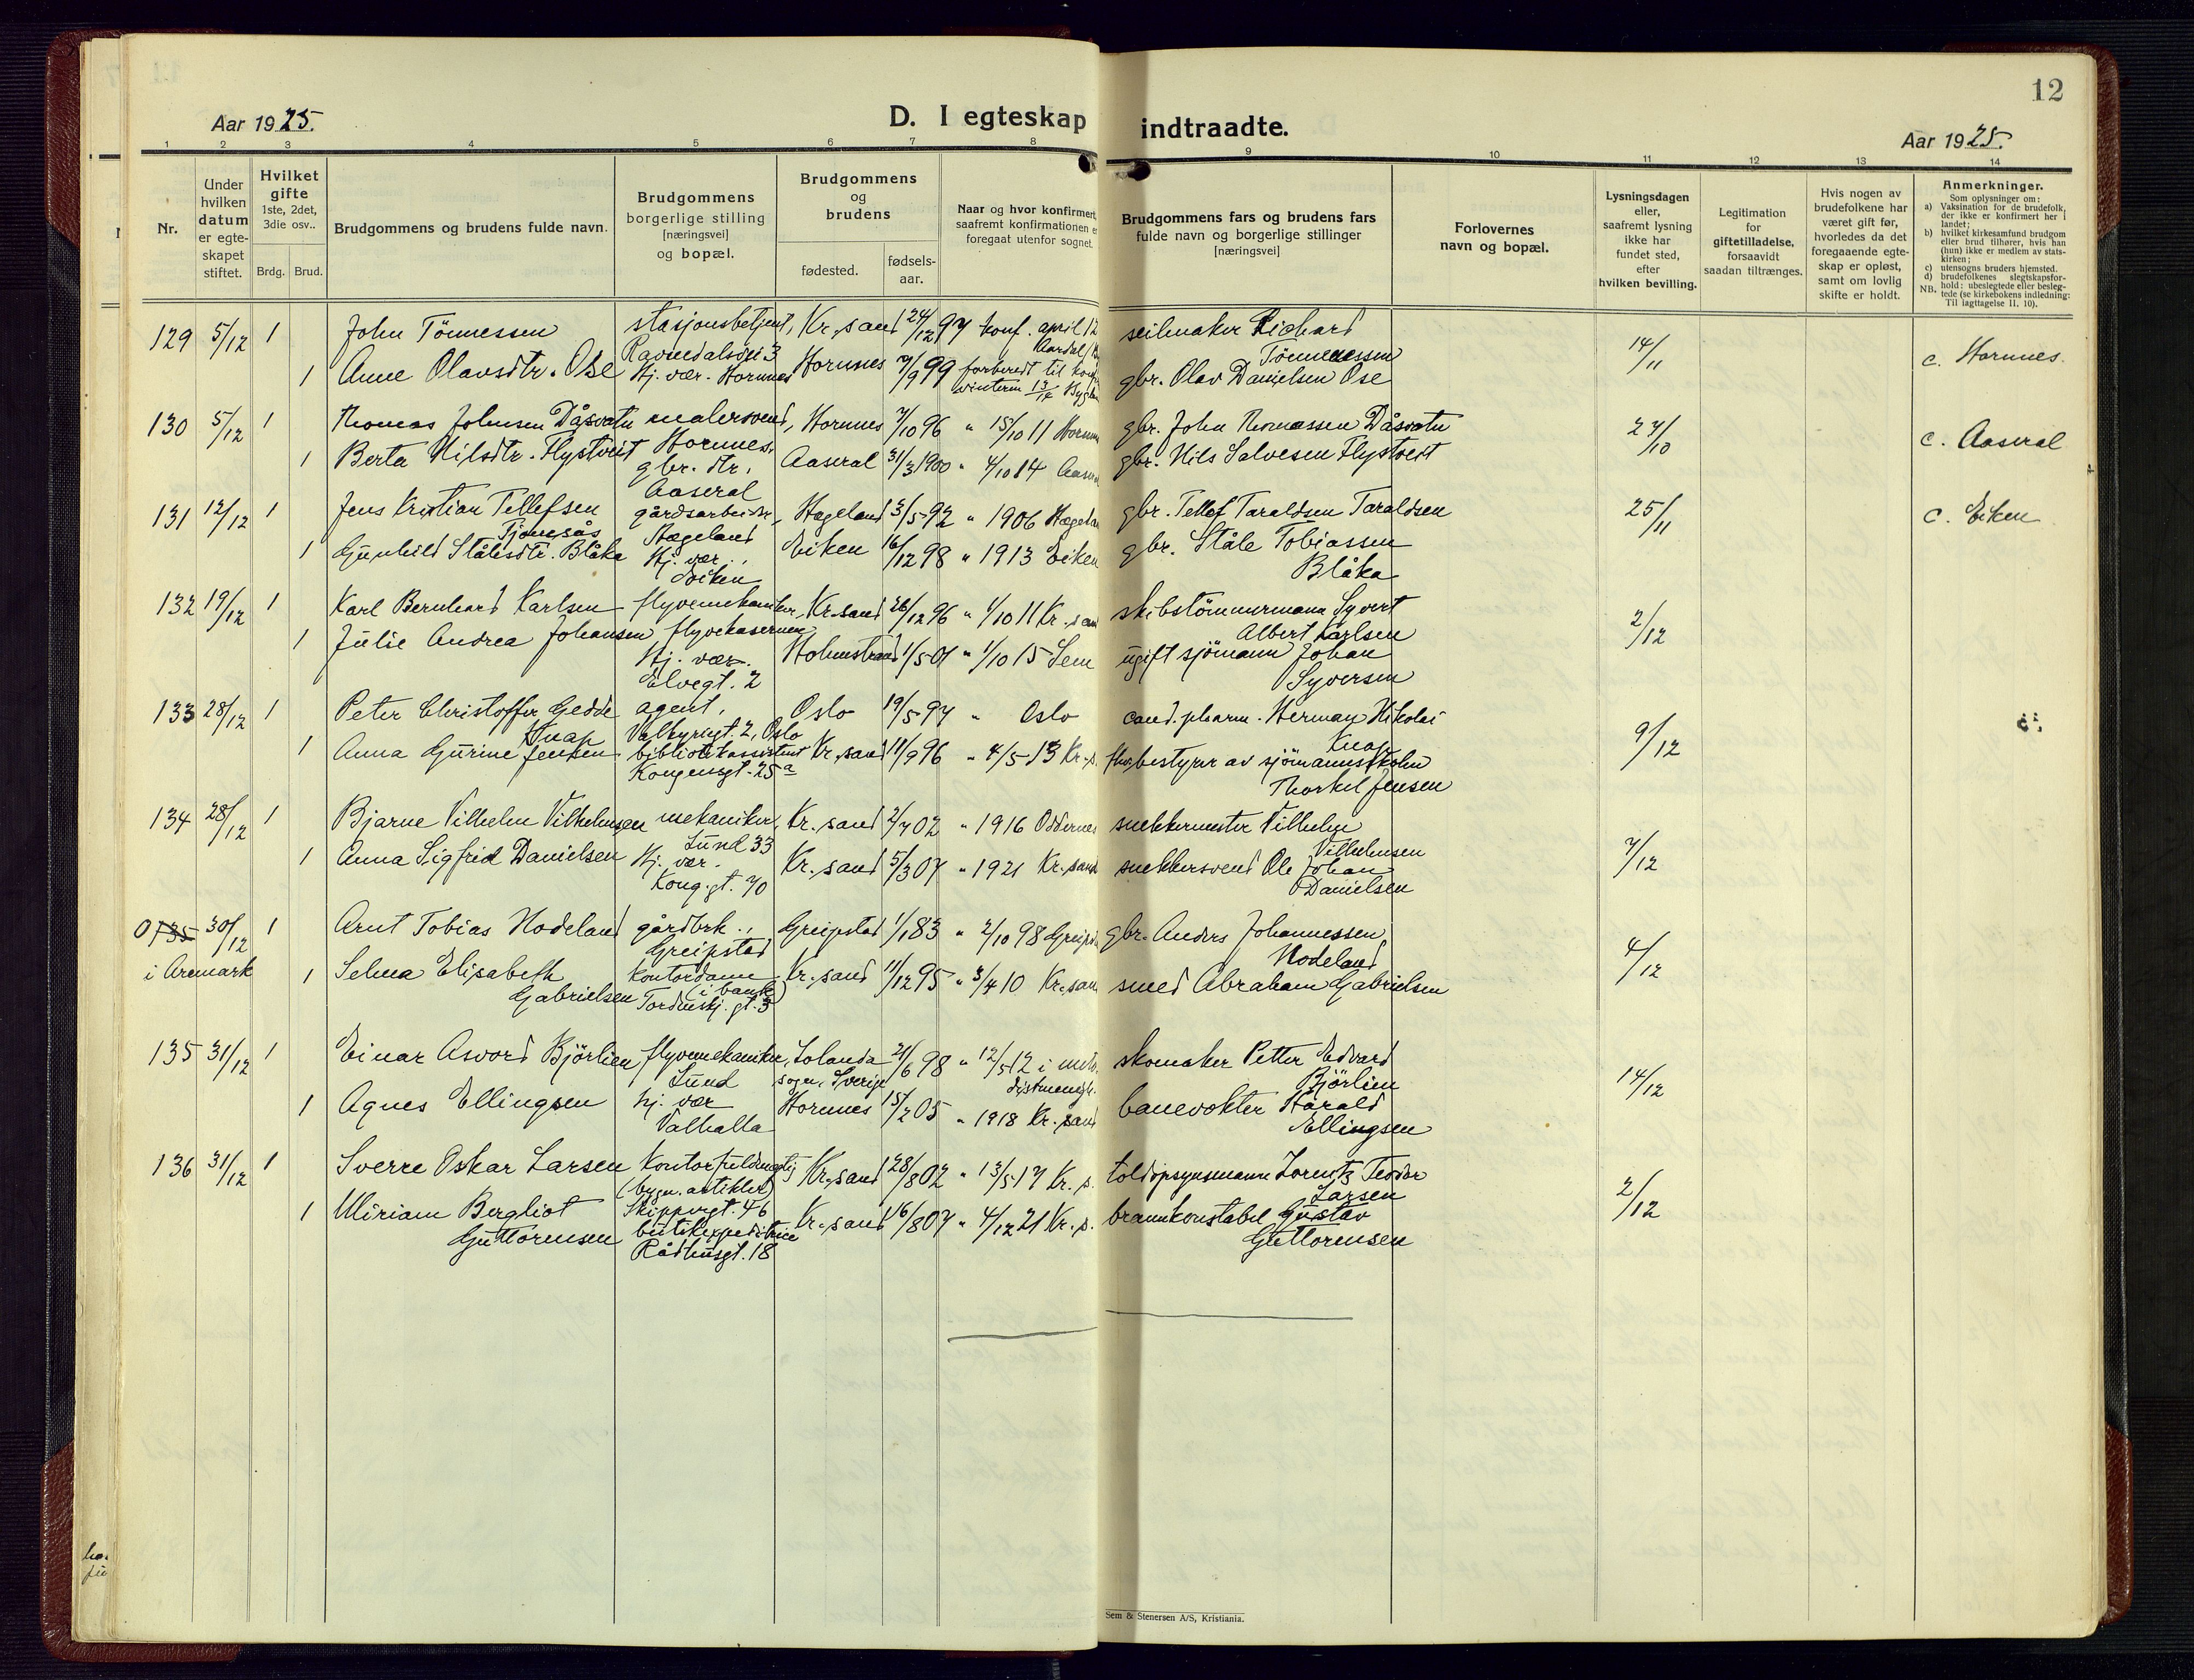 12
Aar 1925.
D. I egteskap indtraadte.
Aar 1925.
1 2 3 4 5 6 7 8 9 10 11 12 13 14
Nr.
Under hvilken datum er egte-skapet stiftet.
Hvilket gifte
1ste, 2det, 3die osv..
Brdg. Brud.
Brudgommens og brudens fulde navn.
Brudgommens borgerlige stilling [næringsvei] og bopæl.
Brudgommens og brudens
fødested.
fødsels-aar.
Naar og hvor konfirmert,
saafremt konfirmationen
foregaat utenfor sognet.
Brudgommens fars og brudens fars
fulde navn og borgerlige stillinger
[næringsvei]
Forlovernes
navn og bopæl.
Lysningsdagen
eller,
saafremt lysning
ikke har
fundet sted,
efter
hvilken bevilling.
Legitimation
for
giftetilladelse,
forsaavidt
saadan tiltrænges.
Hvis nogen av
brudefolkene har
været gift før,
hvorledes da det
foregaaende egte-
skap er opløst,
samt om lovlig
skifte er holdt.
Anmerkninger.
Som oplysninger om:
a) Vaksination for de brudefolk,
der ikke er konfirmert her i
landet;
b) hvilket kirkesamfund brudgom
eller brud tilhører, hvis han
(hun) ikke er medlem av stats-
kirken;
c) utensogns bruders hjemsted.
d) brudefolkenes slegtskapsfor-
hold: ubeslegtede eller besleg-
NB. tede (se kirkebokens indledning:
Til iagttagelse II. 10).
129 5/12 1 John Tönnessen stasjonsbetjent, Kr.sand 24/12 97 konf. april 12 seilmaker Richard 14/11 c. Hornnes.
Ravnedalsvei 3 Aardal Tönnessen
1 Anne Olavsdtr. Ose Hj. vær. Hornnes Hornnes 7/9 99 forberedt til gbr. Olav Danielsen Ose
vinteren 13/14
130 5/12 1 Thomas Johnsen Dåsvatn malersvend, Hornnes 7/10 96 " 15/10 11 gbr. John Thomassen Dåsvatn 27/10 c. Aaseral
Hornnes.
1 Berta Nilsdtr. Flystveit gbr. dtr. Aaseral 31/3 1900 " 4/10 14 gbr. Nils Salvesen Flystveit
Aaseral
131 12/12 1 Jens Kristian Tellefsen gårdsarbeider, Hægeland 3/5 92 " 1906 gbr. Tellef Taraldsen Taraldsen 25/11 c. Eiken
Tjomsås Hægeland
1 Gunhild Stålesdtr. Blåka Hj. vær. Eiken 16/12 98 " 1913 Eiken gbr. Ståle Tobiassen
Eiken Blåka
132 19/12 1 Karl Bernhard Karlsen flyvemekaniker, Kr.sand 26/12 96 " 1/10 11 Kr.sand skibstömmermann Syvert 2/12
flyvekasernen Albert Karlsen
1 Julie Andrea Johansen Hj. vær. Holmestrand 1/5 01 " 1/10 15 Sem ugift sjömann Johan
Elvegt. 2 Syversen
133 28/12 1 Peter Christoffer Gedde agent, Oslo 19/5 97 " Oslo cand. pharm. Herman Nikolai 9/12 c:
Knap Valkyriegt. 2, Oslo Knap
1 Anna Gurine Jensen bibliotekassistent Kr.sand 11/9 96 " 4/5 13 Kr.s. bestyrer av sjömannsskolen
Kongensgt. 25 a Thorkel Jensen
134 28/12 1 Bjarne Vilhelm Vilhelmsen mekaniker, Kr.sand 2/7 02 " 1916 Oddernes snekkermester Vilhelm 7/12
Lund 33 Vilhelmsen
1 Anna Sigfrid Danielsen Hj. vær. Kr.sand 5/3 07 " 1921 Kr.sand snekkersvend Ole Johan
Kong.gt. 70 Danielsen
0 135 30/12 1 Arnt Tobias Hodeland gårdbrk., Greipstad 1/1 83 " 2/10 98 gbr. Anders Johannessen 4/12
Greipstad Hodeland
i Aremark 1 Selma Elisabeth kontordame Kr.sand 11/12 95 " 3/4 10 Kr.sand smed Abraham Gabrielsen
Gabrielsen (i bank)
Tordenskj. gt. 3
135 31/12 1 Einar Asvord Björlien flyvemekaniker, Lolanda 21/6 98 " 12/5 12 i skomaker Petter Edvard 14/12
Lund sogn, Sverige Björlien
1 Agnes Ellingsen hj. vær Hornnes 15/2 05 " 1918 Kr.sand banevokter Harald
Valhalla Ellingsen
136 31/12 1 Sverre Oskar Larsen Kontorfuldmegtig Kr.sand 28/8 02 " 13/5 17 Kr.s. toldopsynsmann Lorentz Teodor 2/12
(bygn. artikler) Larsen
Skippergt. 46
1 Miriam Bergliot butikexpeditrice Kr.sand 16/8 07 " 4/12 21 Kr.s. brannkonstabel Gustav
Guttormsen Rådhusgt. 18 Guttormsen
Sem & Stenersen A/S, Kristiania.